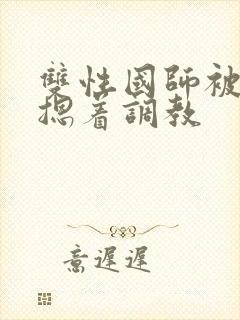 雙性國師被
摁着調教
意遲遲